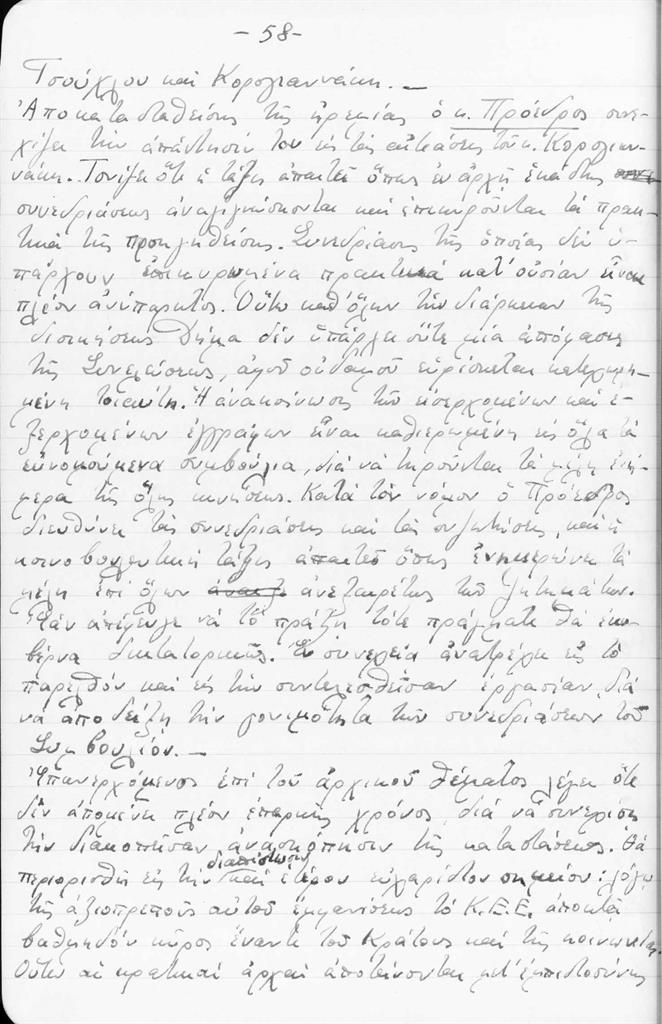 -58-
Τσούχλου καί Κορογιαννάκη. —
Ἀποκατασταθείσης τῆς ἠρεμίας ὁ κ. Πρόεδρος συνε-
χίζει τήν ἀπάντησίν του εἰς τάς αἰτιάσεις τοῦ κ. Κορογιαν-
νάκη. Τονίζει ὅτι ἡ τάξις ἀπαιτεῖ ὅπως ἐν ἀρχῇ ἑκάστης
συνεδριάσεως ἀναγιγνώσκονται καί ἐπικυροῦνται τά πρακ-
τικά τῆς προηγηθείσης. Συνεδρίασις τῆς ὁποίας δέν ὑ-
πάρχουν ἐπικυρωμένα πρακτικά κατ' οὐσίαν εἶναι
πλέον ἀνύπαρκτος. Οὕτω καθ' ὅλην τήν διάρκειαν τῆς
διοικήσεως Δήμα δέν ὑπάρχει οὔτε μία ἀπόφασις
τῆς Συνελεύσεως, ἀφοῦ οὐδαμοῦ εὑρίσκεται κατεχωρη-
μένη τοιαύτη. Ἡ ἀνακοίνωσις τῶν εἰσερχομένων καί ἐ-
ξερχομένων ἐγγράφων εἶναι καθιερωμένη εἰς ὅλα τά
εὐνομούμενα συμβούλια, διά νά τηροῦνται τά μέλη ἐνή-
μερα τῆς ὅλης κινήσεως. Κατά τόν νόμον ὁ Πρόεδρος
διευθύνει τάς συνεδριάσεις καί τάς συζητήσεις, καί ἡ
κοινοβουλευτική τάξις ἀπαιτεῖ ὅπως ἐνημερώνει τά
μέλη ἐπί ὅλων ἀνεξαιρέτως τῶν ζητημάτων.
Ἐάν ἀπέφευγε νά τό πράξῃ τότε πράγματι θά ἐκυ-
βέρνα δικτατορικῶς. Ἐν συνεχείᾳ ἀνατρέχει εἰς τό
παρελθόν καί εἰς τήν συντελεσθεῖσαν ἐργασίαν, διά
νά ἀποδείξῃ τήν γονιμότητα τῶν συνεδριάσεων τοῦ
Συμβουλίου. —
Ἐπανερχόμενος ἐπί τοῦ ἀρχικοῦ θέματος λέγει ὅτι
δέν ἀπομένει πλέον ἐπαρκής χρόνος, διά νά συνεχίσῃ
τήν διακοπεῖσαν ἀνασκόπησιν τῆς καταστάσεως. Θά
περιορισθῇ εἰς τήν διαπίστωσιν καί ἑτέρου εὐχαρίστου σημείου: λόγῳ
τῆς ἀξιοπρεποῦς αὐτοῦ ἐμφανίσεως τό Κ.Ε.Ε. ἀποκτᾷ
βαθμηδόν κῦρος ἔναντι τοῦ Κράτους καί τῆς κοινωνίας.
Οὕτω αἱ κρατικαί ἀρχαί ἀποτείνονται μετ' ἐμπιστοσύνης